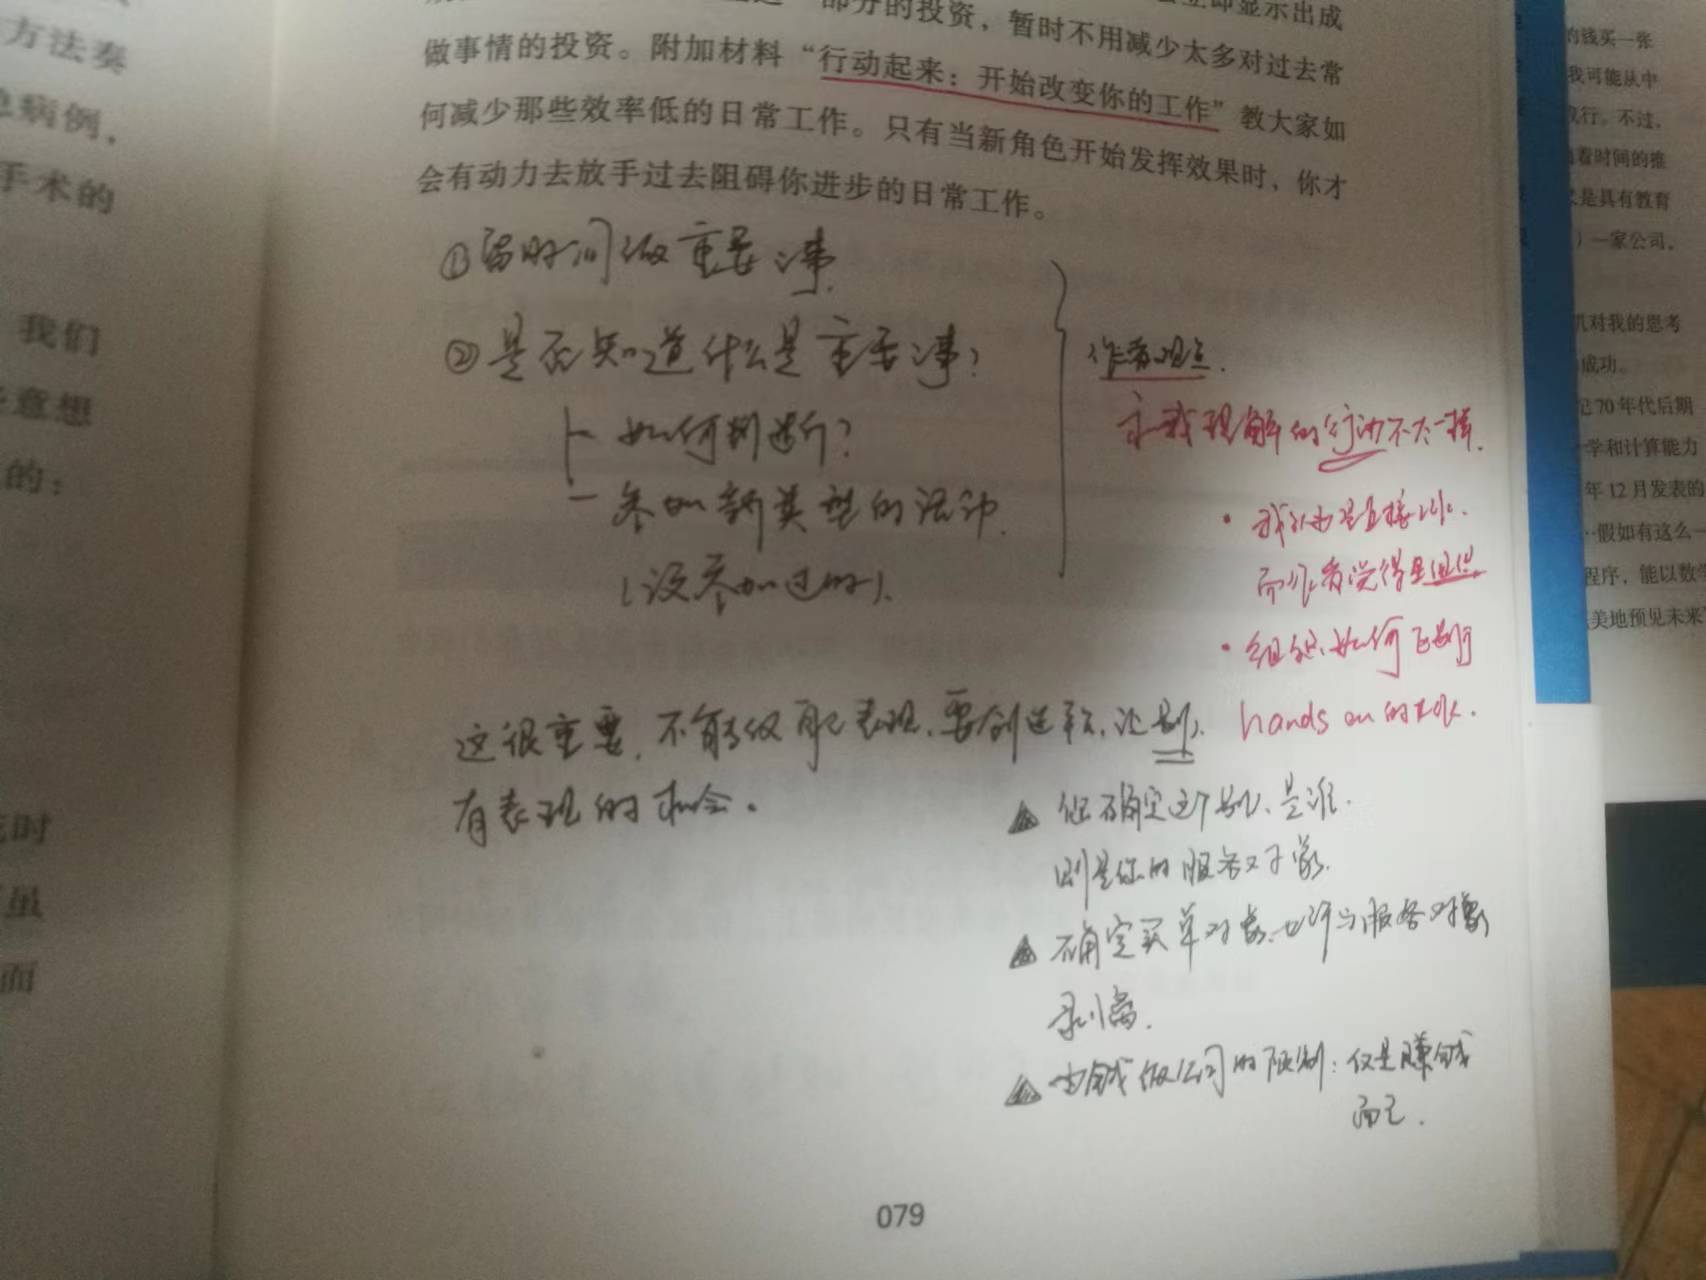 部分的投资，暂时不用减少太多对过去常
做事情的投资。附加材料“行动起来：开始改变你的工作”教大家如
何减少那些效率低的日常工作。只有当新角色开始发挥效果时，你才
会有动力去放手过去阻碍你进步的日常工作。
①留时间做重要事
②是否知道什么是重要事？
如何判断？
参加新类型的活动
（没参加过的）
作者观点.
与我理解的行动不太一样.
·我认为是直接
而作者觉得是组织
·组织如何
hands on的
这很重要，不能仅自己表现，要创造平台，让别人
有表现的机会。
确定这个别人是谁.
则是你的服务对象.
确定买单对象，也许与服务对象
剥离.
的限制：仅是赚钱
而已.
079
方法奏
病例，
手术的
我们
意想
的：
时
虽
而
的钱买一张
我可能从中
行。不过，
着时间的推
是具有教育
）一家公司，
对我的思考
成功。
70年代后期
学和计算能力
年12月发表的
假如有这么一
程序，能以数学
美地预见未来